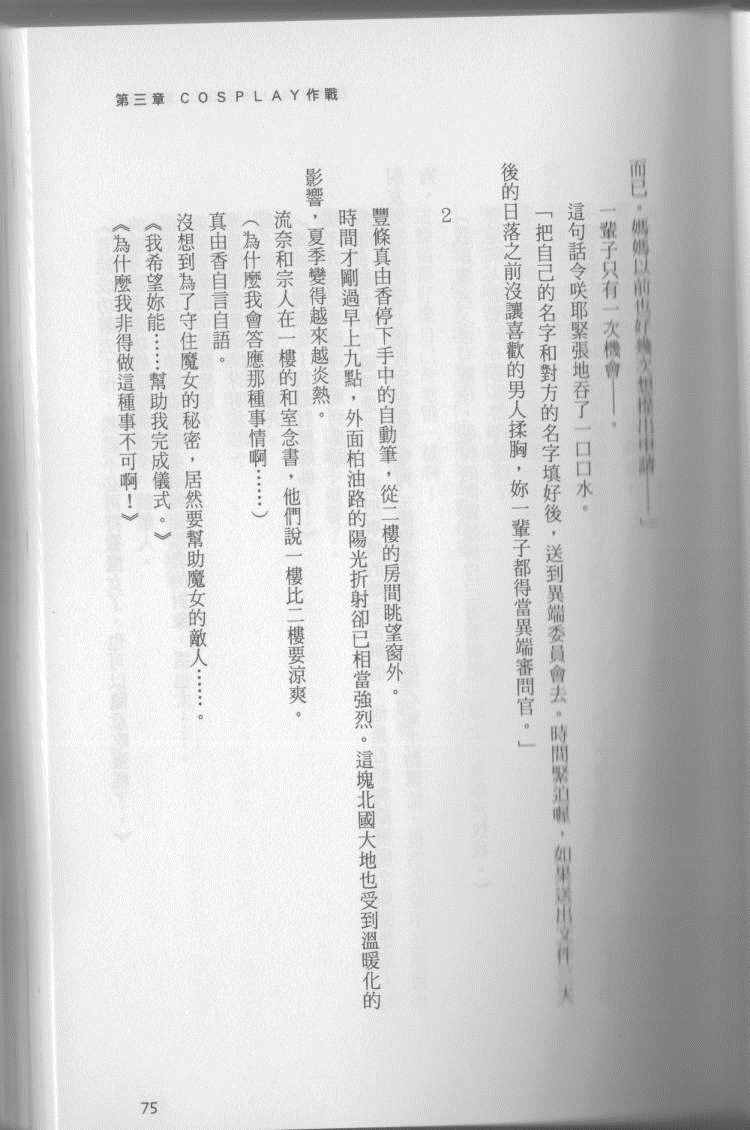 第三章 COSPLAY作戰
而已。媽媽以前也好幾次想提出申請——」
一輩子只有一次機會——。
這句話令咲耶緊張地吞了一口口水。
「把自己的名字和對方的名字填好後，送到異端委員會去。時間緊迫喔，如果送出文件
後的日落之前沒讓喜歡的男人揉胸，妳一輩子都得當異端審問官。」
2
豐條真由香停下手中的自動筆，從二樓的房間眺望窗外。
時間才剛過早上九點，外面柏油路的陽光折射卻已相當強烈。這塊北國大地也受到溫暖化的
影響，夏季變得越來越炎熱。
流奈和宗人在一樓的和室念書，他們說一樓比二樓要涼爽。
（為什麼我會答應那種事情啊……）
真由香自言自語。
沒想到為了守住魔女的秘密，居然要幫助魔女的敵人……。
《我希望妳能……幫助我完成儀式。》
《為什麼我非得做這種事不可啊！》
75